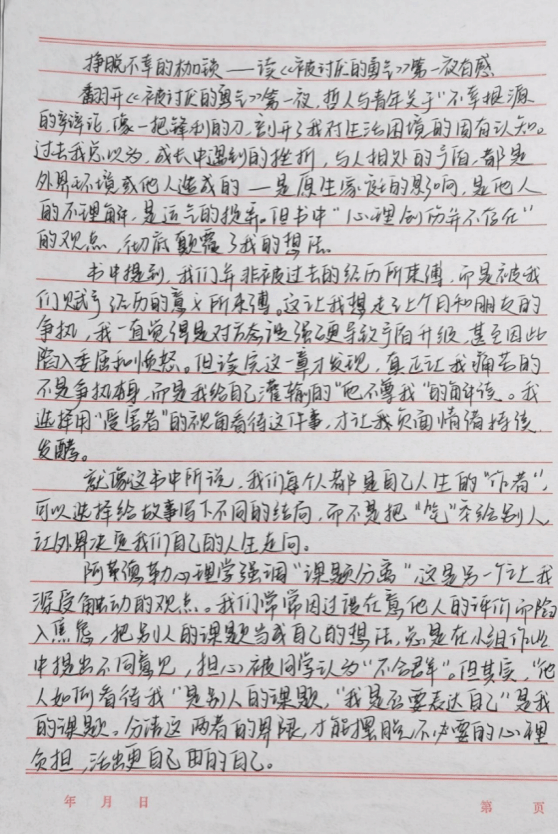 挣脱不幸的枷锁——读《被讨厌的勇气》第一夜有感
翻开《被讨厌的勇气》第一夜，哲人与青年关于"不幸根源
的辩论，像一把锋利的刀，剖开了我对生活困境的固有认知。
过去我总以为，成长中遇到的挫折，与人相处的矛盾，都是
外界环境或他人造成的——是原生家庭的影响，是他人
的不理解，是运气的捉弄。但书中"心理创伤并不存在"
的观点，彻底颠覆了我的想法。
书中提到，我们并非被过去的经历所束缚，而是被我
们赋予经历的意义所束缚。这让我想起上个月和朋友的
争执，我一直觉得是对方态度强硬导致矛盾升级，甚至因此
陷入委屈和愤怒。但读完这一章才发现，真正让我痛苦的
不是争执本身，而是我给自己灌输的"他不尊我"的解读。我
选择用"受害者"的视角看待这件事，才让我负面情绪持续
发酵。
就像这书中所说，我们每个人都是自己人生的"作者"，
可以选择给故事写下不同的结局，而不是把"笔"交给别人，
让外界决定我们自己的人生走向。
阿德勒心理学强调"课题分离"，这是另一个让我
深受触动的观点。我们常常因过设在意他人的评价而陷
入焦虑，把别人的课题当成自己的想法，总是在小组作业
中提出不同意见，担心被同学认为"不合群"。但其实，"他
人如何看待我"是别人的课题，"我是否要表达自己"是我
的课题。分清这两者的界限，才能摆脱不必要的心理
负担，活出更自己由的自己。
年 月 日
第 页